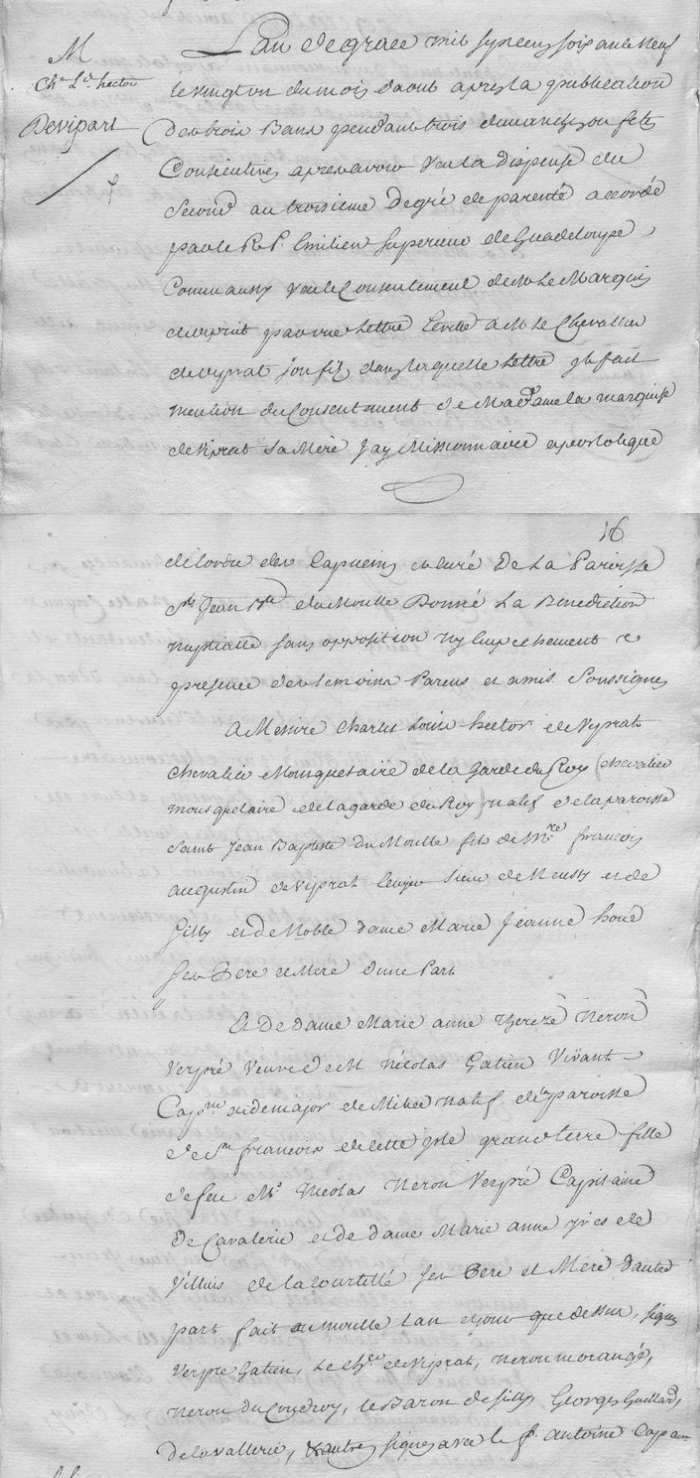 M
Chr Ls hector
Devipart
L'an de grace mil sept cens soixante neuf
le vingt un du mois daout apres la publication
des trois Bans pendant trois dimanches ou fetes
Consecutives apres avoir vu la dispense du
Second au troisieme degré de parenté accordée
par le R. P. Emilien superieur de Guadeloupe,
Comme aussy vu le Consentement de M. le Marquis
par une Lettre Ecrite a M. le Chevallier
son fils dans laquelle Lettre il fait
mention du Consentement de Madame la marquise
de Viprat sa Mere J'ay Missionnaire apostolique
16
de lordre des Capucins curé De La Paroisse
St Jean Bte du Moulle Donné La Benediction
nuptialle sans opposition ny Empechement
presence des temoins Parens et amis Soussignes
A Messire Charles Louis hector de Vyprat
chevalier Mousquetaire de la Garde du Roy (chevalier
mousquetaire de la garde du Roy) natif de la paroisse
Saint Jean Baptiste du Moulle fils de Mre francois
augustin de Viprat sieur de et de
Silly et de Noble dame Marie Jeanne houé
ses Pere et Mere d'une Part
Et de dame Marie anne therese Neron
Verpré Veuve de M Nicolas Gatien Vivant
aide major de Milice natif de paroisse
de St francois de cette isle grande terre fille
de feu Mr Nicolas Neron Verpré Capitaine
De Cavalerie et de dame Marie anne yves de
Villiers de la courtelle ses Pere et Mere d'autre
part fait au moulle lan et jour que dessus, signés
Verpré Gatien, Le Cher de Viprat, neron morangé,
neron du Coudroy, le Baron de Silly Georges Gaillard
Delavallerie, & autres signés avec le f. antoine Capucin